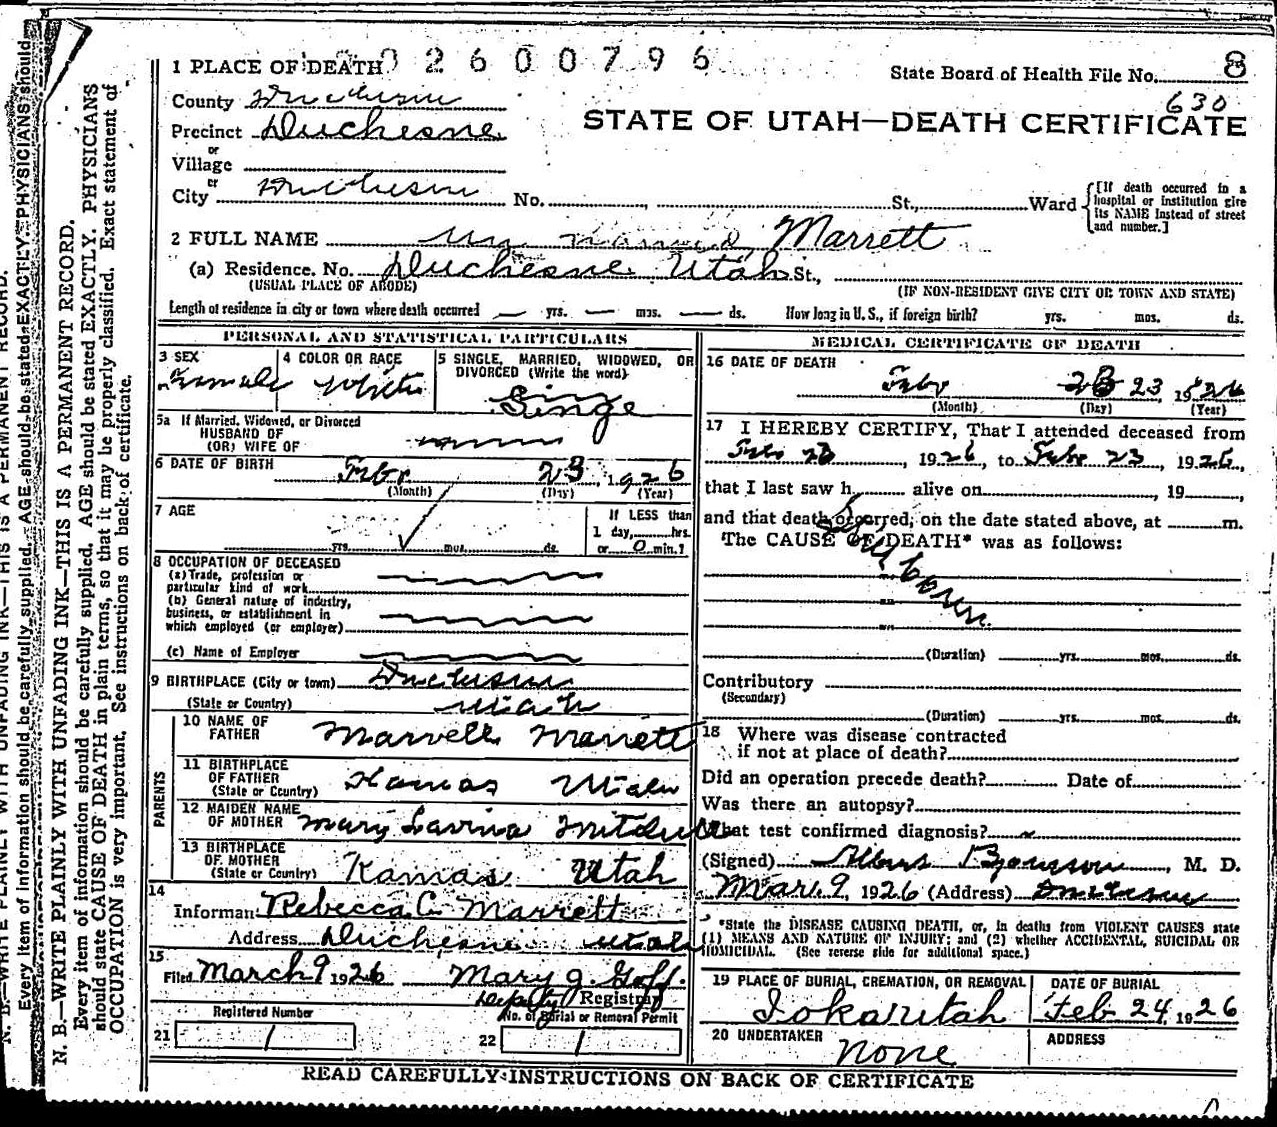 N. B.—WRITE PLAINLY WITH UNFADING INK—THIS IS A PERMANENT RECORD.
Every item of information should be carefully supplied. AGE should be stated EXACTLY. PHYSICIANS should
N. B.—WRITE PLAINLY WITH UNFADING INK—THIS IS A PERMANENT RECORD.
Every item of information should be carefully supplied. AGE should be stated EXACTLY. PHYSICIANS
should state CAUSE OF DEATH in plain terms, so that it may be properly classified. Exact statement of
OCCUPATION is very important. See instructions on back of certificate.
2600796
1 PLACE OF DEATH
State Board of Health File No. 8
630
County Duchesne
STATE OF UTAH—DEATH CERTIFICATE
Precinct Duchesne
or
Village
or
City Duchesne No. , St., Ward
[If death occurred in a
hospital or institution give
its NAME instead of street
and number.]
2 FULL NAME Un named Marrett
(a) Residence. No. Duchesne Utah St.,
(USUAL PLACE OF ABODE) (IF NON-RESIDENT GIVE CITY OR TOWN AND STATE)
Length of residence in city or town where death occurred — yrs. — mos. — ds. How long in U. S., if foreign birth? yrs. mos. ds.
PERSONAL AND STATISTICAL PARTICULARS
3 SEX
Female
4 COLOR OR RACE
White
5 SINGLE, MARRIED, WIDOWED, OR
DIVORCED (Write the word)
Singe
5a If Married, Widowed, or Divorced
HUSBAND OF
(OR) WIFE OF
6 DATE OF BIRTH Febr 23, 1926
(Month) (Day) (Year)
7 AGE
yrs. mos. ds.
If LESS than
1 day, hrs.
or 0 min.?
8 OCCUPATION OF DECEASED
(a) Trade, profession or
particular kind of work
(b) General nature of industry,
business, or establishment in
which employed (or employer)
(c) Name of Employer
9 BIRTHPLACE (City or town) Duchesne
(State or Country) Utah
PARENTS
10 NAME OF
FATHER Marvell Marrett
11 BIRTHPLACE
OF FATHER
(State or Country) Kamas Utah
12 MAIDEN NAME
OF MOTHER Mary Lavina Mitchell
13 BIRTHPLACE
OF MOTHER
(State or Country) Kamas Utah
14
Informant Rebecca C. Marrett
Address Duchesne Utah
15
Filed March 9 1926 Mary J. Goff.
Deputy Registrar
Registered Number
21 1
No. of Burial or Removal Permit
22 1
MEDICAL CERTIFICATE OF DEATH
16 DATE OF DEATH
Febr 23 1926
(Month) (Day) (Year)
17 I HEREBY CERTIFY, That I attended deceased from
Febr 23, 1926, to Febr 23, 1926,
that I last saw h alive on , 19 ,
and that death occurred, on the date stated above, at m.
The CAUSE OF DEATH* was as follows:
Still born
(Duration) yrs. mos. ds.
Contributory
(Secondary)
(Duration) yrs. mos. ds.
18 Where was disease contracted
if not at place of death?
Did an operation precede death? Date of
Was there an autopsy?
What test confirmed diagnosis?
(Signed) , M. D.
Mar. 9, 1926 (Address) Duchesne
*State the DISEASE CAUSING DEATH, or, in deaths from VIOLENT CAUSES state
(1) MEANS AND NATURE OF INJURY; and (2) whether ACCIDENTAL, SUICIDAL OR
HOMICIDAL. (See reverse side for additional space.)
19 PLACE OF BURIAL, CREMATION, OR REMOVAL
Ioka Utah
DATE OF BURIAL
Feb 24, 1926
20 UNDERTAKER
None
ADDRESS
READ CAREFULLY INSTRUCTIONS ON BACK OF CERTIFICATE